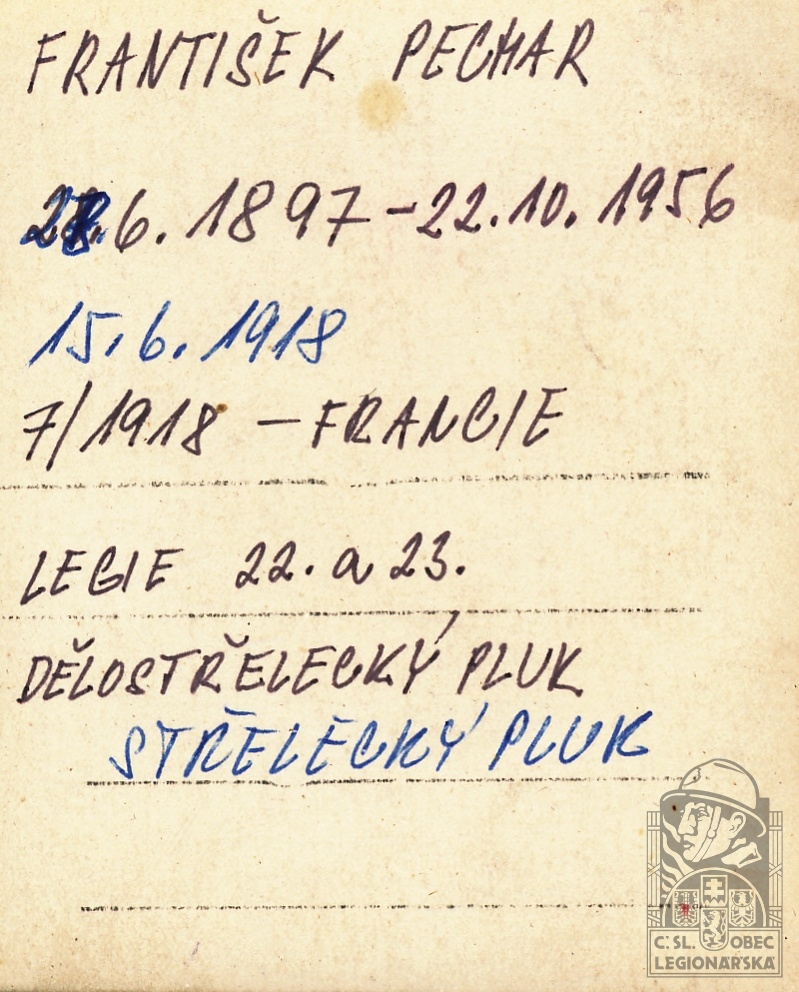 FRANTIŠEK PECHAR
28.6.1897-22.10.1956
15.6.1918
7/1918 – FRANCIE
LEGIE 22. a 23.
DĚLOSTŘELECKÝ PLUK
STŘELECKÝ PLUK
Č.SL. OBEC
LEGIONÁŘSKÁ